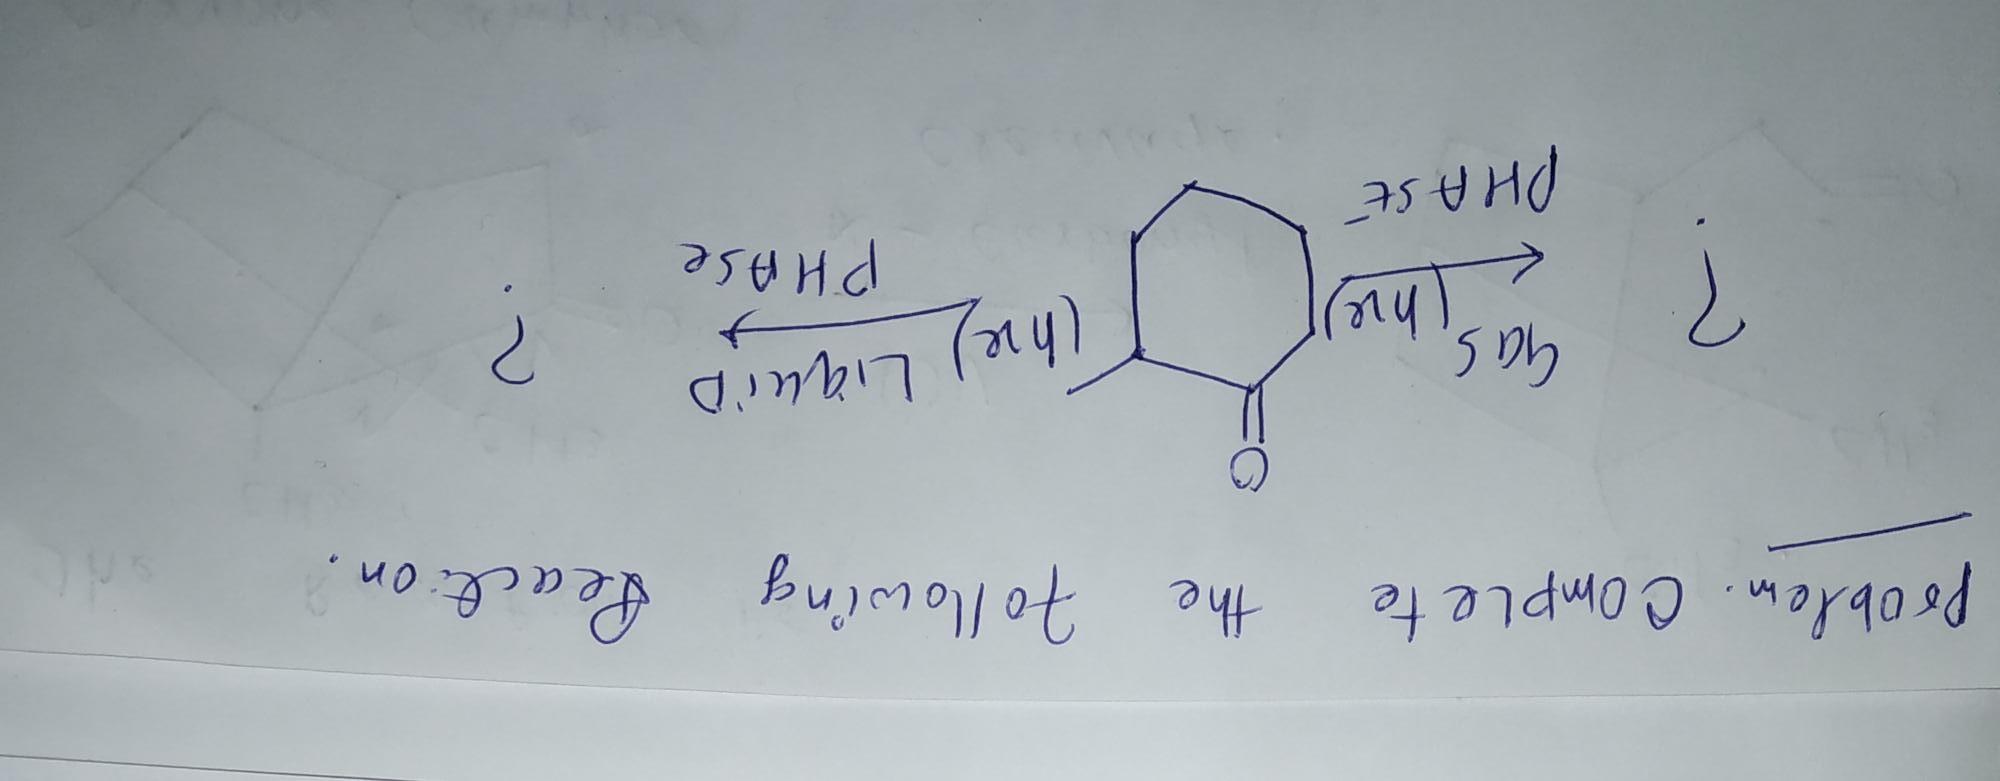 Problem. Complete the following Reaction.
O
? gas (hν) PHASE (hν) LIQUID PHASE ?